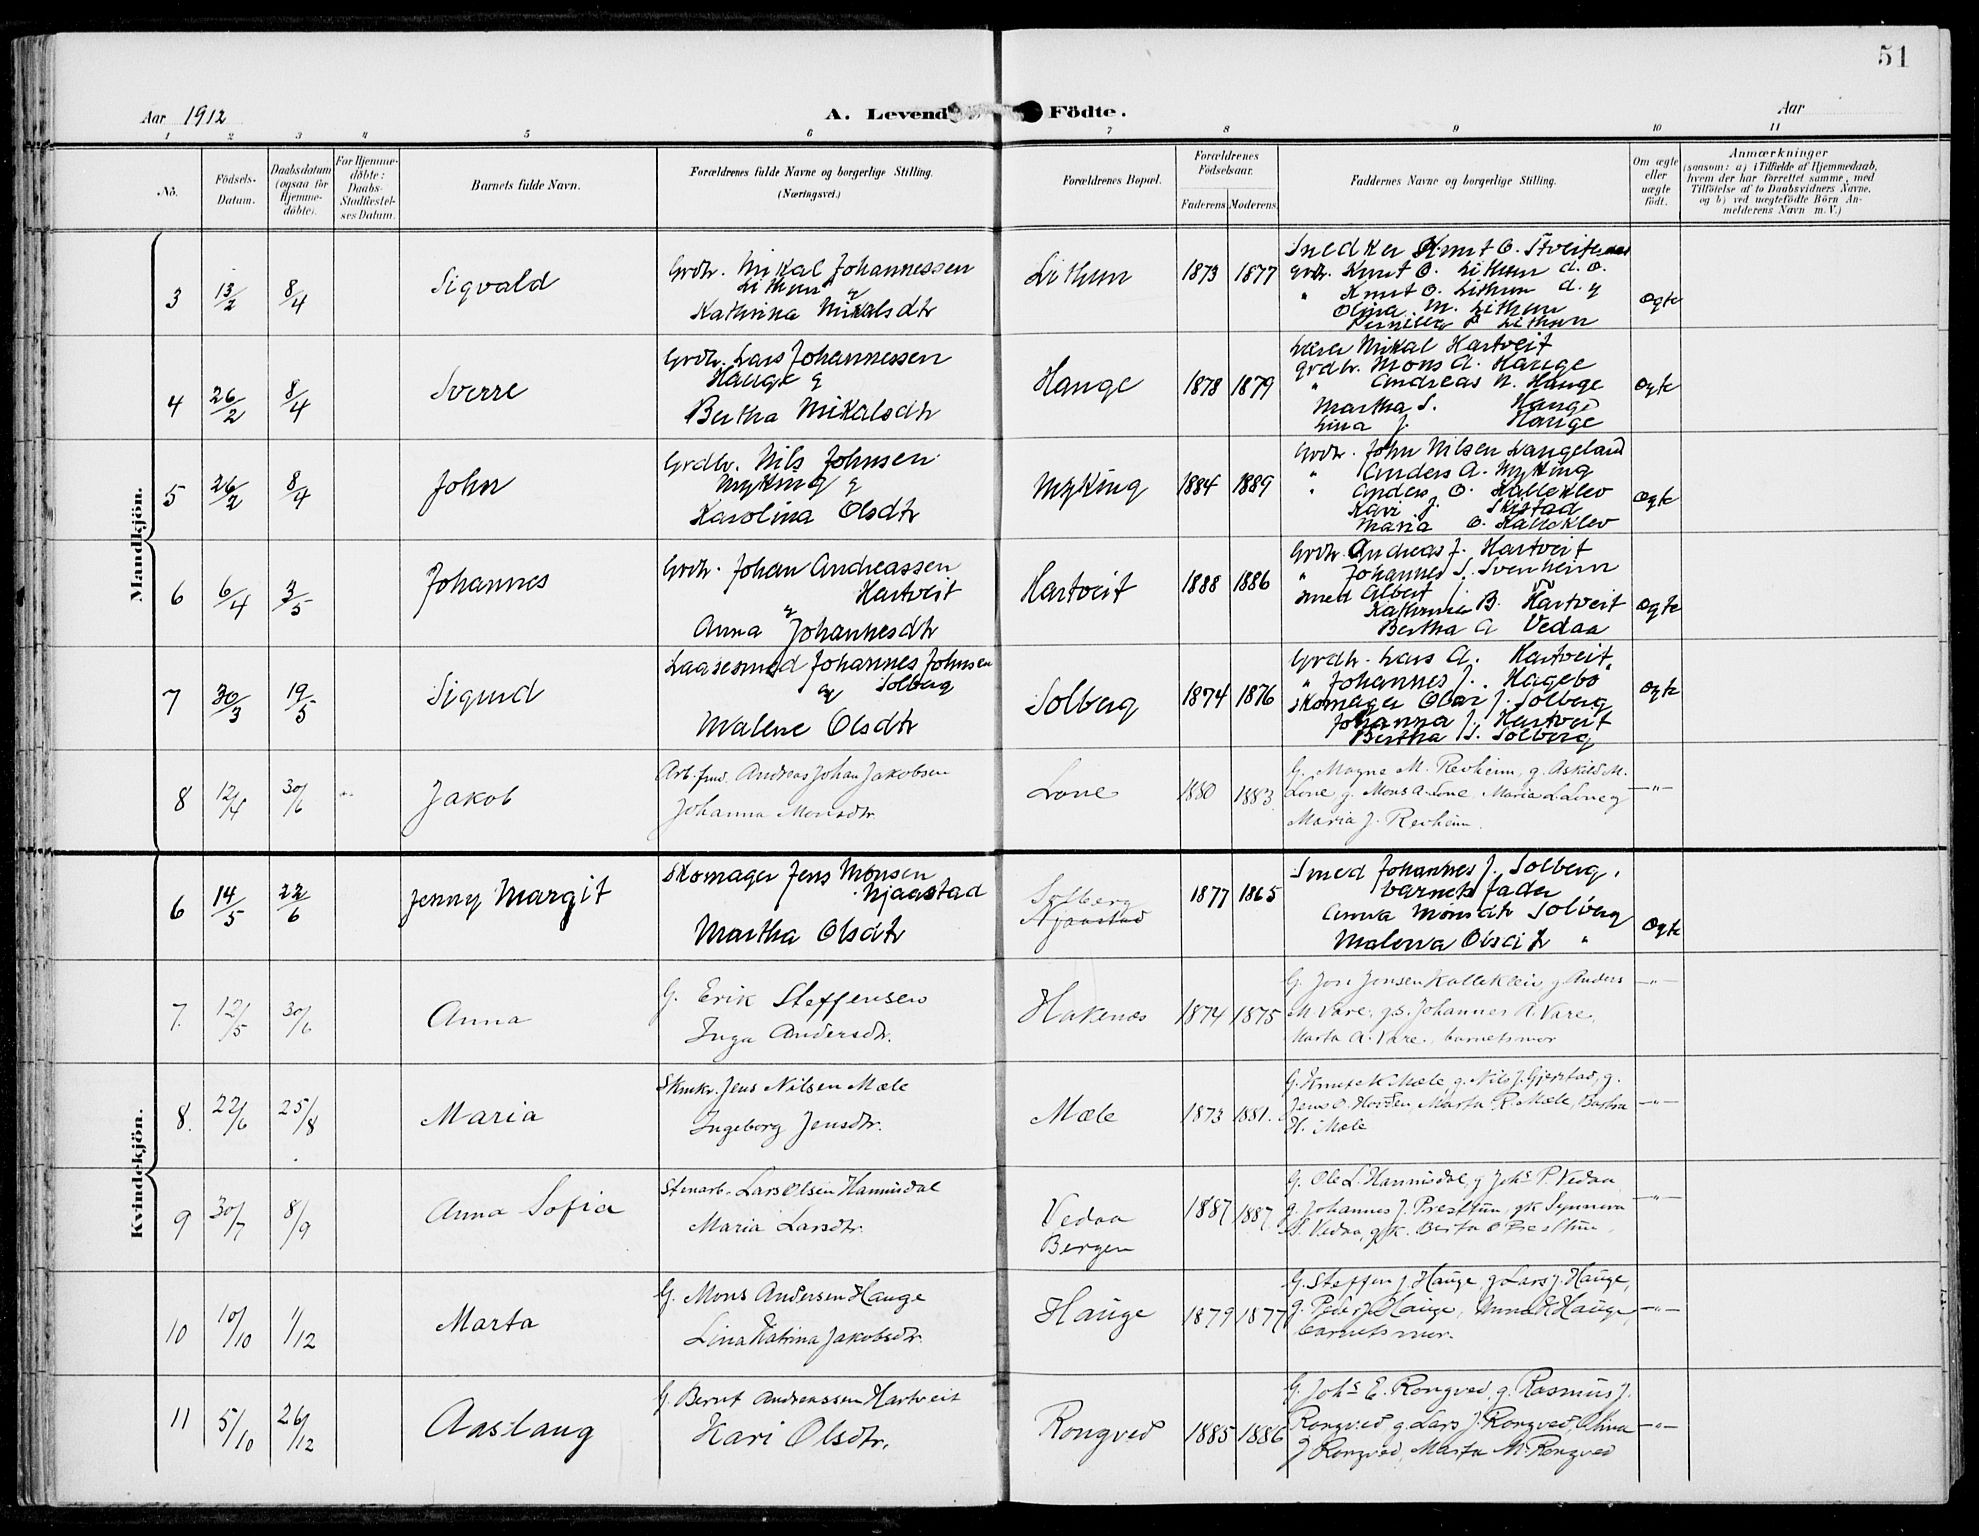 51
Aar 1912
A. Levend
Födte.
Aar
1 2 3 4 5 6 7 8 9 10 11
No.
Födsels-Datum.
Daabsdatum (ogsaa for Hjemme-döbte).
For Hjemme-döbte: Daabs-Stadfæstel-ses Datum.
Barnets fulde Navn.
Forældrenes fulde Navne og borgerlige Stilling. (Næringsvei.)
Forældrenes Bopæl.
Forældrenes Födselsaar.
Faderens Moderens
Faddernes Navne og borgerlige Stilling.
Om ægte eller uægte födt.
Anmærkninger
(saasom: a) i Tilfælde af Hjemmedaab, hvem der har forrettet samme, med Tilföielse af to Daabsvidners Navne, og b) ved uægtefödte Börn An-melderens Navn m. V.)
Mandkjön.
3 13/2 8/4 Sigvald
Grdbr. Mikal Johannessen
Lithun &
Kathrina Mikalsdtr
Lithun 1873 1877
Snedker Knut O.
Grdbr. Knut O. Lithun d. æ.
" Knut O. Lithun d. y
Olina M. Lithun
Lithun
Ægte
4 26/2 8/4 Sverre
Grdbr. Lars Johannessen
Hauge &
Bertha Mikalsdtr
Hauge 1878 1879
Lærer Mikal Hartveit
Grdbr. Mons A. Hauge
" Andreas N. Hauge
Martha S. Hauge
Lina J. Hauge
Ægte
5 26/2 8/4 John
Grdbr. Nils Johnsen
Myking &
Karolina Olsdtr
Myking 1884 1889
Grdbr. John Nilsen Langeland
" Anders A. Myking
" Anders O. Kalleklev
Kari J. Skistad
Maria O. Kalleklev
Ægte
6 6/4 3/5 Johannes
Grdbr. Johan Andreassen
Hartveit
&
Anna Johannesdtr
Hartveit 1888 1886
Grdbr. Andreas J. Hartveit
" Johannes S. Svenheim
Smed Albert J. "
Kathrina B. Hartveit
Bertha A Vedaa
Ægte
7 30/3 19/5 Sigurd
Laasesmed Johannes Johnsen
& Solberg
Malene Olsdtr
Solberg 1874 1876
Grdbr. Lars A. Hartveit
" Johannes J. Hagebø
Skomager Olav J. Solberg
Johanna J. Hartveit
Bertha J. Solberg
Ægte
8 12/4 30/6 Jakob
Arb. Andreas Johan Jakobsen
Johanna Monsdtr.
Lone 1880 1883.
G. Magne M. Revheim, g. Askild M.
Lone g. Mons A. Lone, Maria L. Lone g
Maria J. Revheim.
—"—
Kvindekjön.
6 14/5 22/6 Jenny Margit
Skomager Jens Monsen
Njaastad
Martha Olsdtr
Solberg
Njaastad
1877 1865
Smed Johannes J. Solberg,
barnets fader
Anna Monsdtr Solberg
Malena Olsdtr "
Ægte
7. 12/5 30/6 Anna
G. Erik Steffensen
Inga Andersdtr.
Hakenes 1874 1875
G. Jon Jonsen Kalleklev g Anders
M. Vare, g.s. Johannes A. Vare,
Marta A. Vare, barnets mor
—"—
8. 22/6 25/8 Maria
Skmkr. Jens Nilsen Mæle
Ingeborg Jensdtr.
Mæle 1873 1881.
G. Knut K Mæle, g. Nils J. Gjerstad, g.
Jens O. Hovden, Marta R. Mæle,
H. Mæle
—"—
9 30/7 8/9 Anna Sofia
Stenarb. Lars Olsen Hannisdal
Maria Larsdtr.
Vedaa
Bergen
1887 1887
G. Ole L. Hannisdal, g Johs P. Vedaa
g. Johannes J. Presttun, gk Synneva
S. Vedaa, gk. Berta O Presttun,
—"—
10 10/10 1/12 Marta
G. Mons Andersen Hauge
Lina Katrina Jakobsdtr.
Hauge 1879 1877
G. Steffen J. Hauge, g Lars J. Hauge,
g. Peder J. Hauge, Hauge,
barnets mor.
—"—
11 5/10 26/12 Aaslaug
G. Bernt Andreassen Hartveit
Kari Olsdtr.
Rongved 1885 1886
G. Johs E. Rongved, g. Rasmus J.
Rongved g Lars J. Rongved, Olina
J Rongved, Marta M. Rongved
—"—